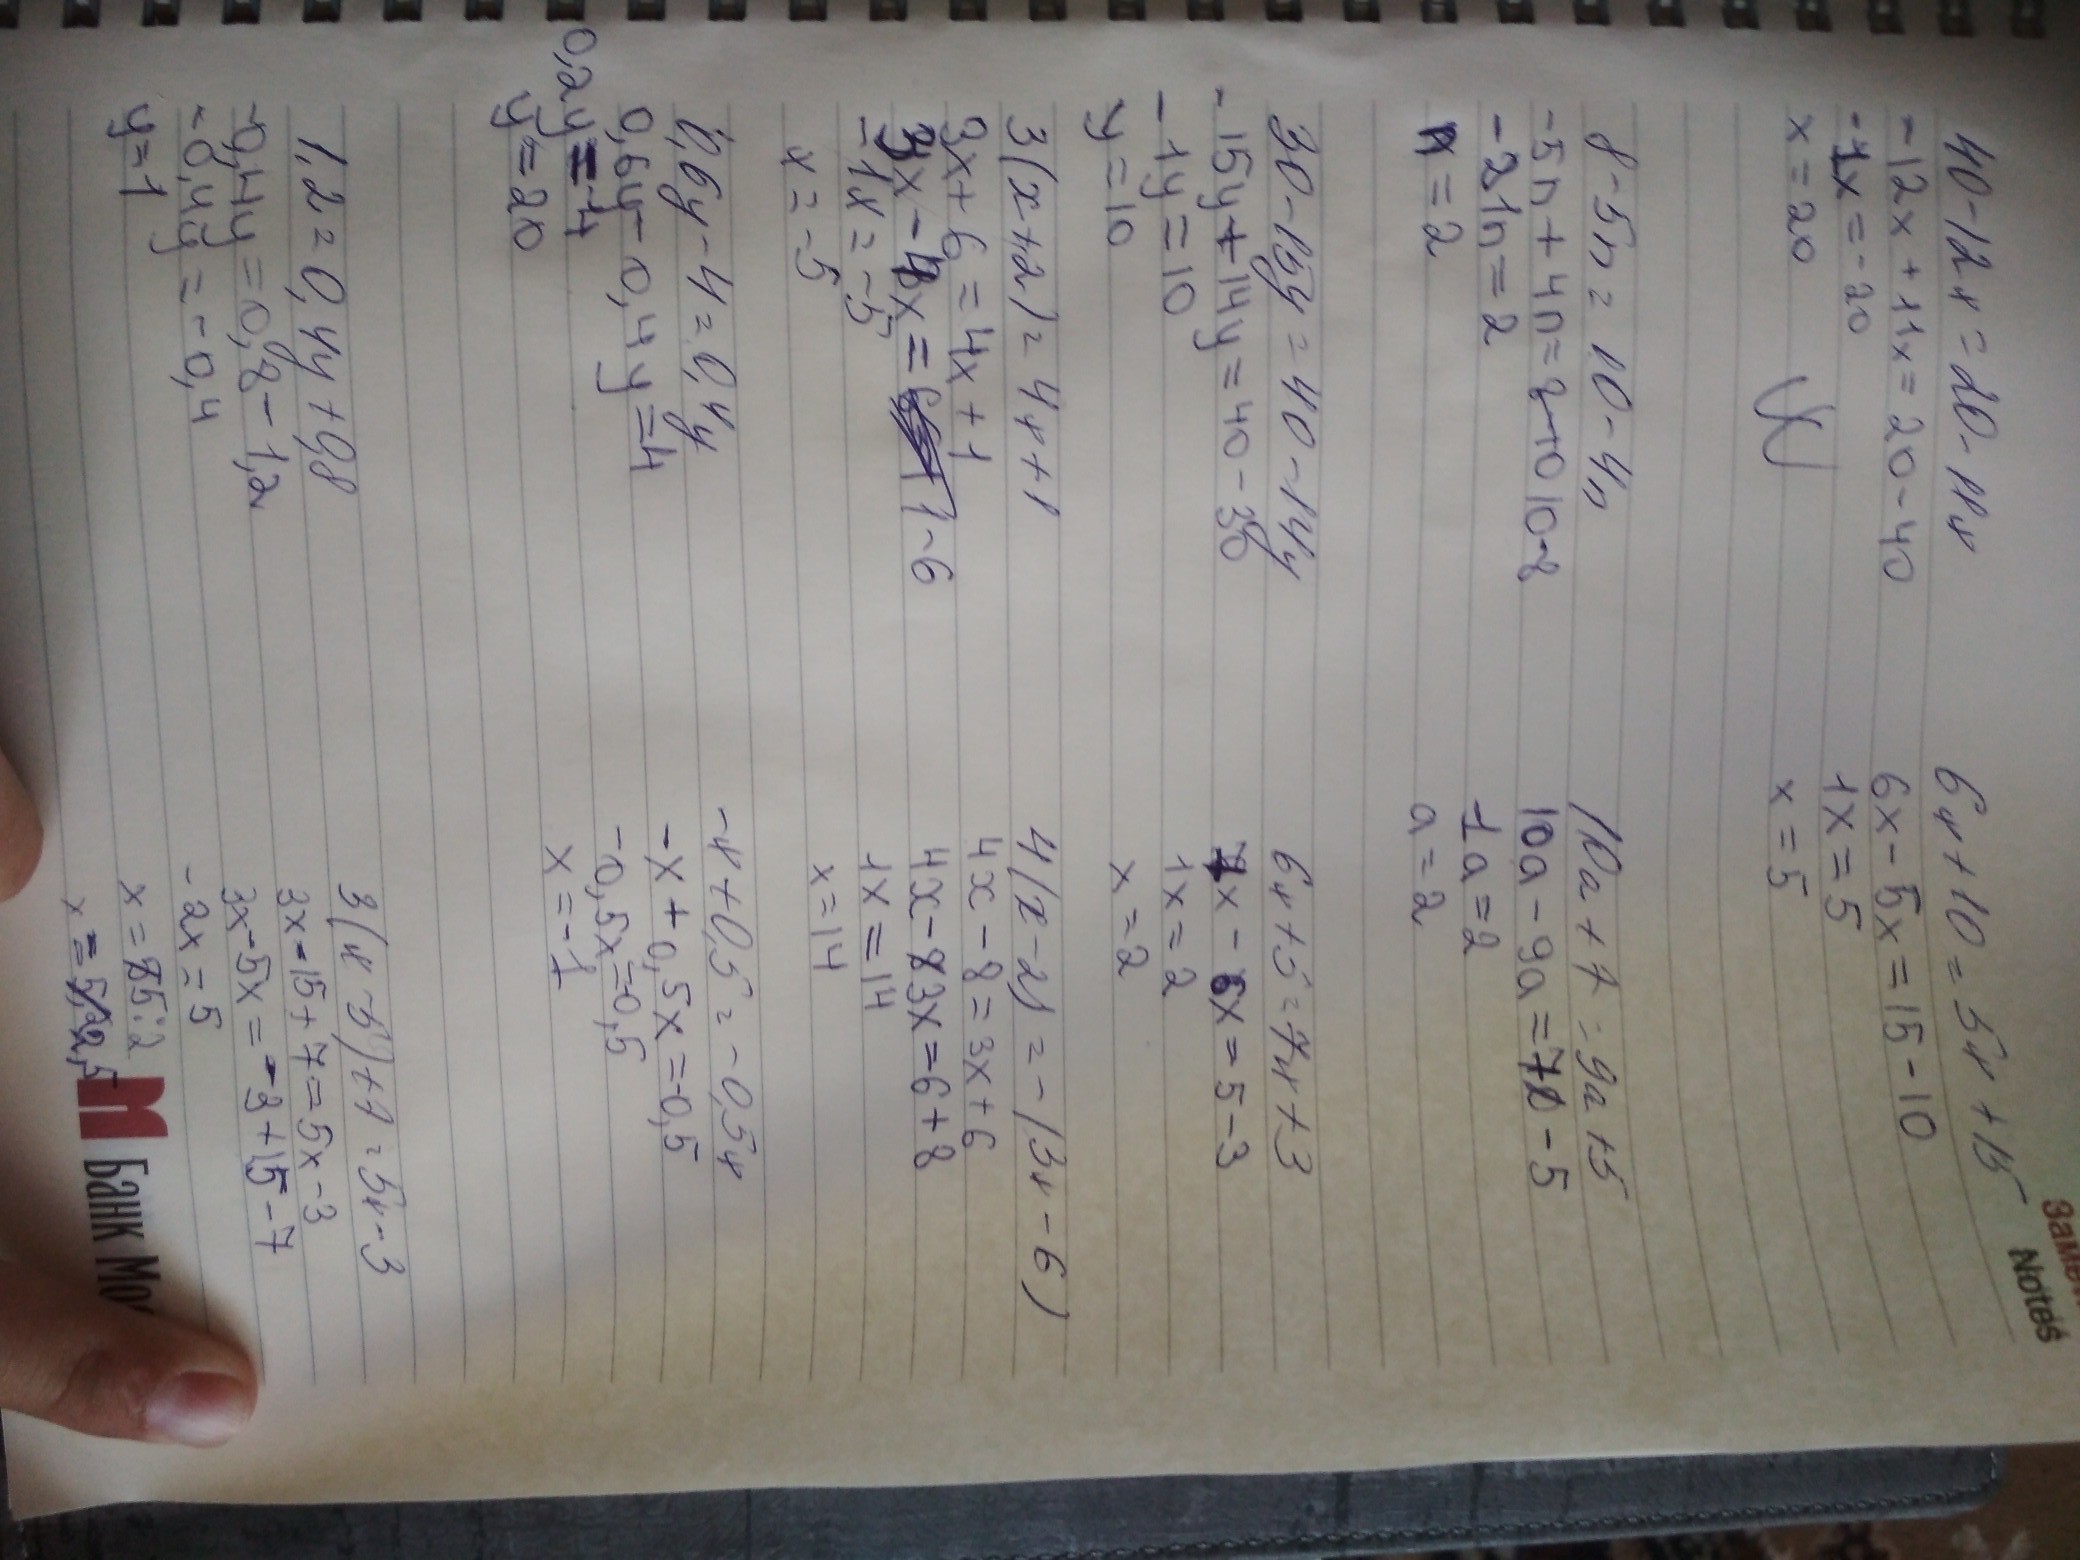 Заме
Notes
40-12x=20-11x
-12x+11x=20-40
-1x=-20
x=20
6x+10=5x+15
6x-5x=15-10
1x=5
x=5
8-5n=10-4n
-5n+4n=10-8
-1n=2
n=2
10a+7=9a+5
10a-9a=7-5
1a=2
a=2
30-15y=40-14y
-15y+14y=40-30
-1y=10
y=10
6x+5=7x+3
7x-6x=5-3
1x=2
x=2
3(x+2)=4x+1
3x+6=4x+1
3x-4x=1-6
-1x=-5
x=-5
4(x-2)=-(3x-6)
4x-8=3x+6
4x-3x=6+8
1x=14
x=14
0,6y-4=0,4y
0,6y-0,4y=4
0,2y=4
y=20
-x+0,5=-0,5x
-x+0,5x=-0,5
-0,5x=0,5
x=-1
1,2=0,4y+0,8
-0,4y=0,8-1,2
-0,4y=-0,4
y=1
3(x-5)+7=5x-3
3x-15+7=5x-3
3x-5x=-3+15-7
-2x=5
x=5:2
x=2,5
БАНК МО